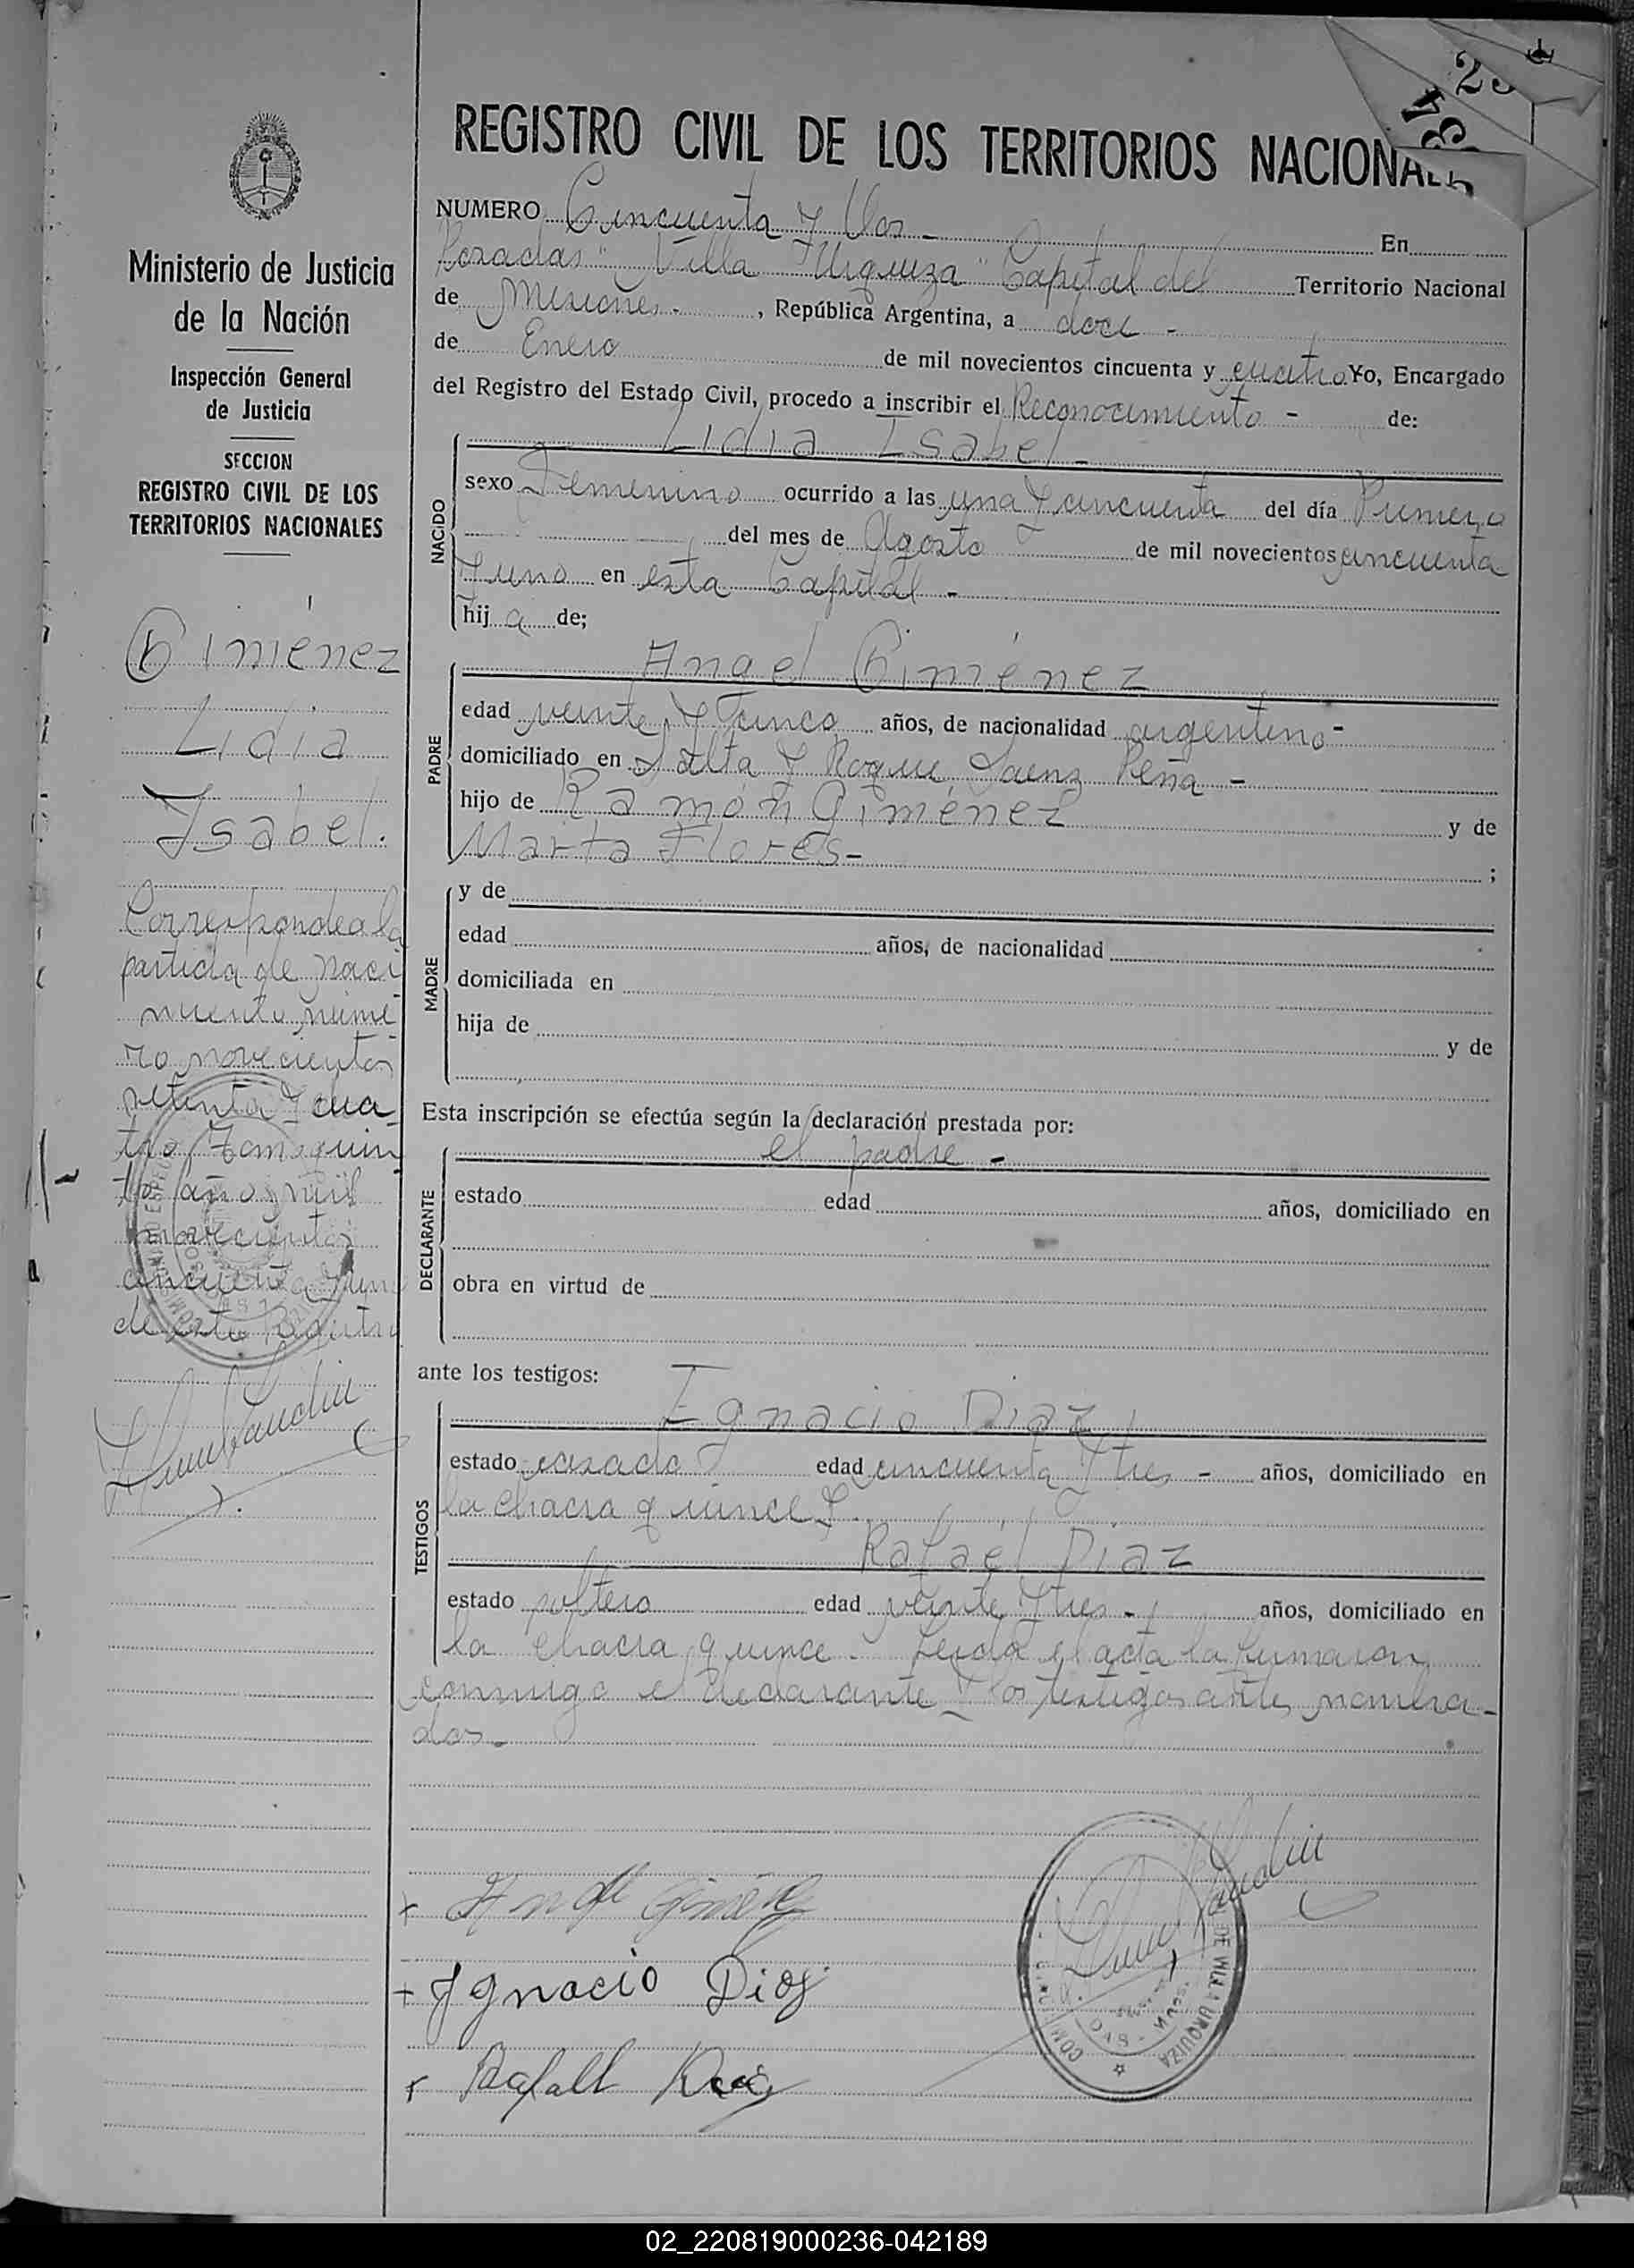 25
REGISTRO CIVIL DE LOS TERRITORIOS NACIONAL
NUMERO Cincuenta y Dos - En
Posadas "Villa Urquiza" Capital del Territorio Nacional
de Misiones - , República Argentina, a doce -
de Enero de mil novecientos cincuenta y cuatro Yo, Encargado
del Registro del Estado Civil, procedo a inscribir el Reconocimiento - de:
NACIDO
Lidia Isabel -
sexo Femenino ocurrido a las una y cincuenta del día Primero
del mes de Agosto de mil novecientos cincuenta
y uno en esta Capital -
hij a de;
PADRE
Angel Giménez
edad veinte y cinco años, de nacionalidad argentino -
domiciliado en Salta y Roque Saenz Peña -
hijo de Ramón Giménez y de
Marta Flores - ;
MADRE
y de
edad años, de nacionalidad
domiciliada en
hija de y de
Esta inscripción se efectúa según la declaración prestada por:
DECLARANTE
el padre -
estado edad años, domiciliado en
obra en virtud de
ante los testigos:
TESTIGOS
Ignacio Diaz
estado casado edad cincuenta y tres - años, domiciliado en
la chacra quince y
Rafael Diaz
estado soltero edad veinte y tres - años, domiciliado en
la chacra quince - Leida el acta la firmaron
conmigo el declarante y los testigos antes nombra-
dos.
Angel Giménez
Ignacio Diaz
Rafael Diaz
DE VILLA URQUIZA
Ministerio de Justicia
de la Nación
Inspección General
de Justicia
SECCION
REGISTRO CIVIL DE LOS
TERRITORIOS NACIONALES
Giménez
Lidia
Isabel.
Corresponde a la
partida de naci
miento núme
ro novecientos
setenta y cua
tro Tomo quin
to año mil
novecientos
cincuenta y uno
de este Registro
02_220819000236-042189